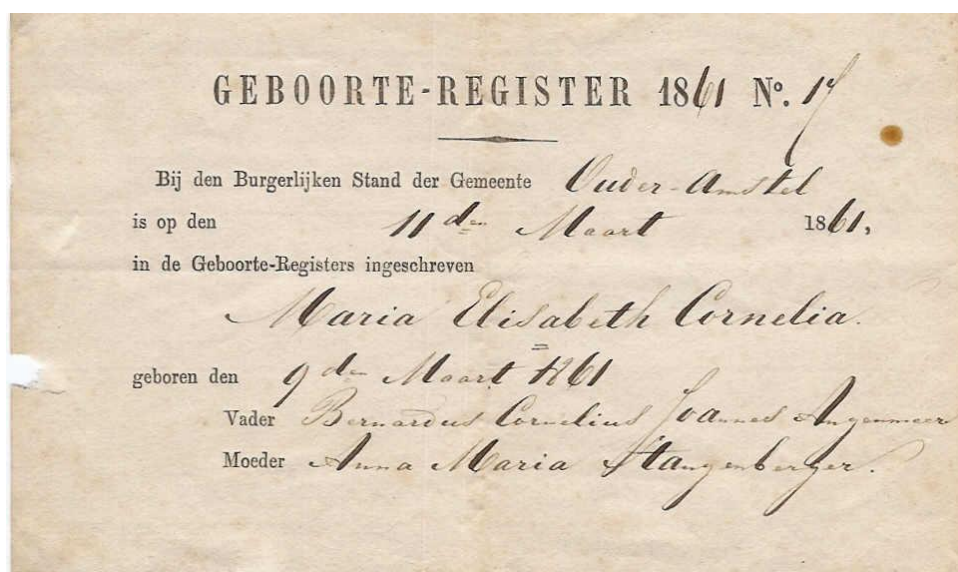 GEBOORTE-REGISTER 1861 No. 17
Bij den Burgerlijken Stand der Gemeente Ouder-Amstel
is op den 11den Maart 1861,
in de Geboorte-Registers ingeschreven
Maria Elisabeth Cornelia.
geboren den 9den Maart 1861
Vader Bernardus Cornelius Joannes Angenmeer
Moeder Anna Maria Stangenberger.